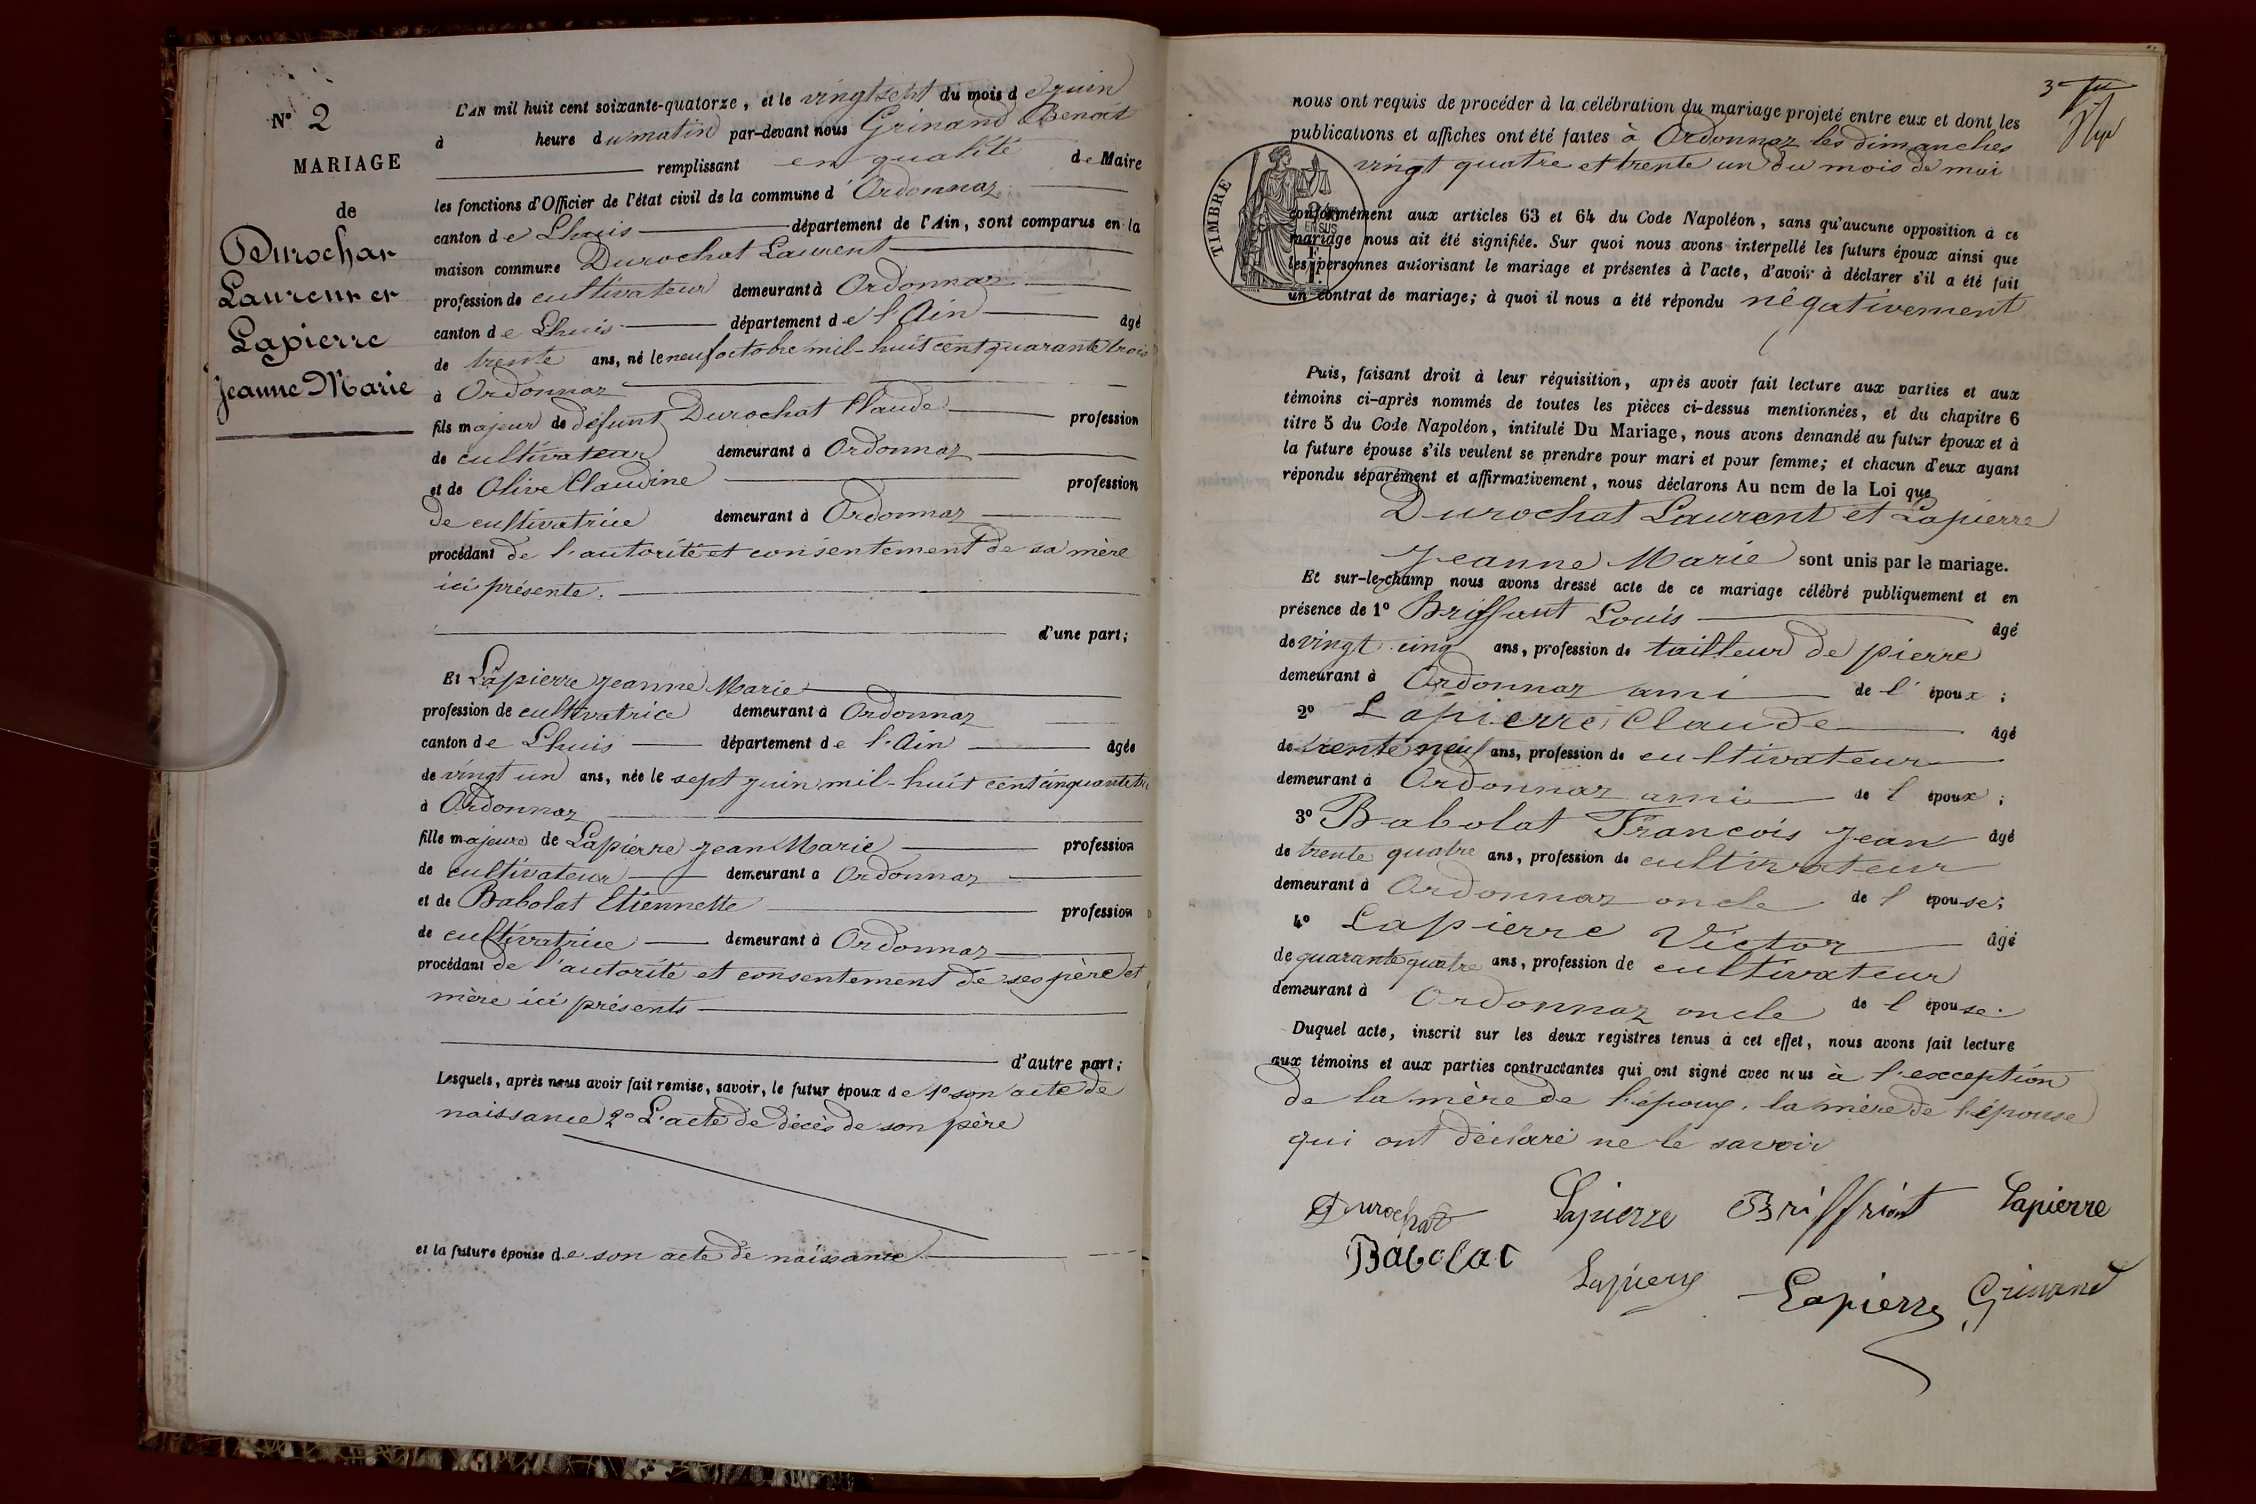 N° 2
MARIAGE
de
Durochat
Laurent et
Lapierre
Jeanne Marie
L'AN mil huit cent soixante-quatorze, et le vingt sept du mois de juin
à heure du matin par-devant nous Grinand Benoit
remplissant en qualité de Maire
les fonctions d'Officier de l'état civil de la commune d'Ordonnaz
canton de Lhuis département de l'Ain, sont comparus en la
maison commune Durochat Laurent
profession de cultivateur demeurant à Ordonnaz
canton de Lhuis département de l'Ain âgé
de trente ans, né le neuf octobre mil-huit cent quarante trois
à Ordonnaz
fils majeur de défunt Durochat Claude profession
de cultivateur demeurant à Ordonnaz
et de Olive Claudine profession
de cultivatrice demeurant à Ordonnaz
procédant de l'autorité et consentement de sa mère
ici présente.
d'une part;
Et Lapierre Jeanne Marie
profession de cultivatrice demeurant à Ordonnaz
canton de Lhuis département de l'Ain âgée
de vingt un ans, née le sept juin mil-huit cent cinquante
à Ordonnaz
fille majeure de Lapierre Jean Marie profession
de cultivateur demeurant à Ordonnaz
et de Babolat Etiennette profession
de cultivatrice demeurant à Ordonnaz
procédant de l'autorité et consentement de ses père et
mère ici présents
d'autre part;
Lesquels, après nous avoir fait remise, savoir, le futur époux de 1° son acte de
naissance 2° L'acte de décès de son père
et la future épouse de son acte de naissance
nous ont requis de procéder à la célébration du mariage projeté entre eux et dont les
publications et affiches ont été faites à Ordonnaz les dimanches
vingt quatre et trente un du mois de mai
TIMBRE
conformément aux articles 63 et 64 du Code Napoléon, sans qu'aucune opposition à ce
mariage nous ait été signifiée. Sur quoi nous avons interpellé les futurs époux ainsi que
les personnes autorisant le mariage et présentes à l'acte, d'avoir à déclarer s'il a été fait
un contrat de mariage; à quoi il nous a été répondu négativement
Puis, faisant droit à leur réquisition, après avoir fait lecture aux parties et aux
témoins ci-après nommés de toutes les pièces ci-dessus mentionnées, et du chapitre 6
titre 5 du Code Napoléon, intitulé Du Mariage, nous avons demandé au futur époux et à
la future épouse s'ils veulent se prendre pour mari et pour femme; et chacun d'eux ayant
répondu séparément et affirmativement, nous déclarons Au nom de la Loi que
Durochat Laurent et Lapierre
Jeanne Marie sont unis par le mariage.
Et sur-le-champ nous avons dressé acte de ce mariage célébré publiquement et en
présence de 1° Briffaut Louis âgé
de vingt cinq ans, profession de tailleur de pierre
demeurant à Ordonnaz ami de l'époux;
2° Lapierre Claude âgé
de trente neuf ans, profession de cultivateur
demeurant à Ordonnaz ami de l'époux;
3° Babolat François Jean âgé
de trente quatre ans, profession de cultivateur
demeurant à Ordonnaz oncle de l'épouse;
4° Lapierre Victor âgé
de quarante quatre ans, profession de cultivateur
demeurant à Ordonnaz oncle de l'épouse.
Duquel acte, inscrit sur les deux registres tenus à cet effet, nous avons fait lecture
aux témoins et aux parties contractantes qui ont signé avec nous à l'exception
de la mère de l'époux, la mère de l'épouse
qui ont déclaré ne le savoir
Durochat Lapierre Lapierre
Babolat
Lapierre Lapierre Grinand